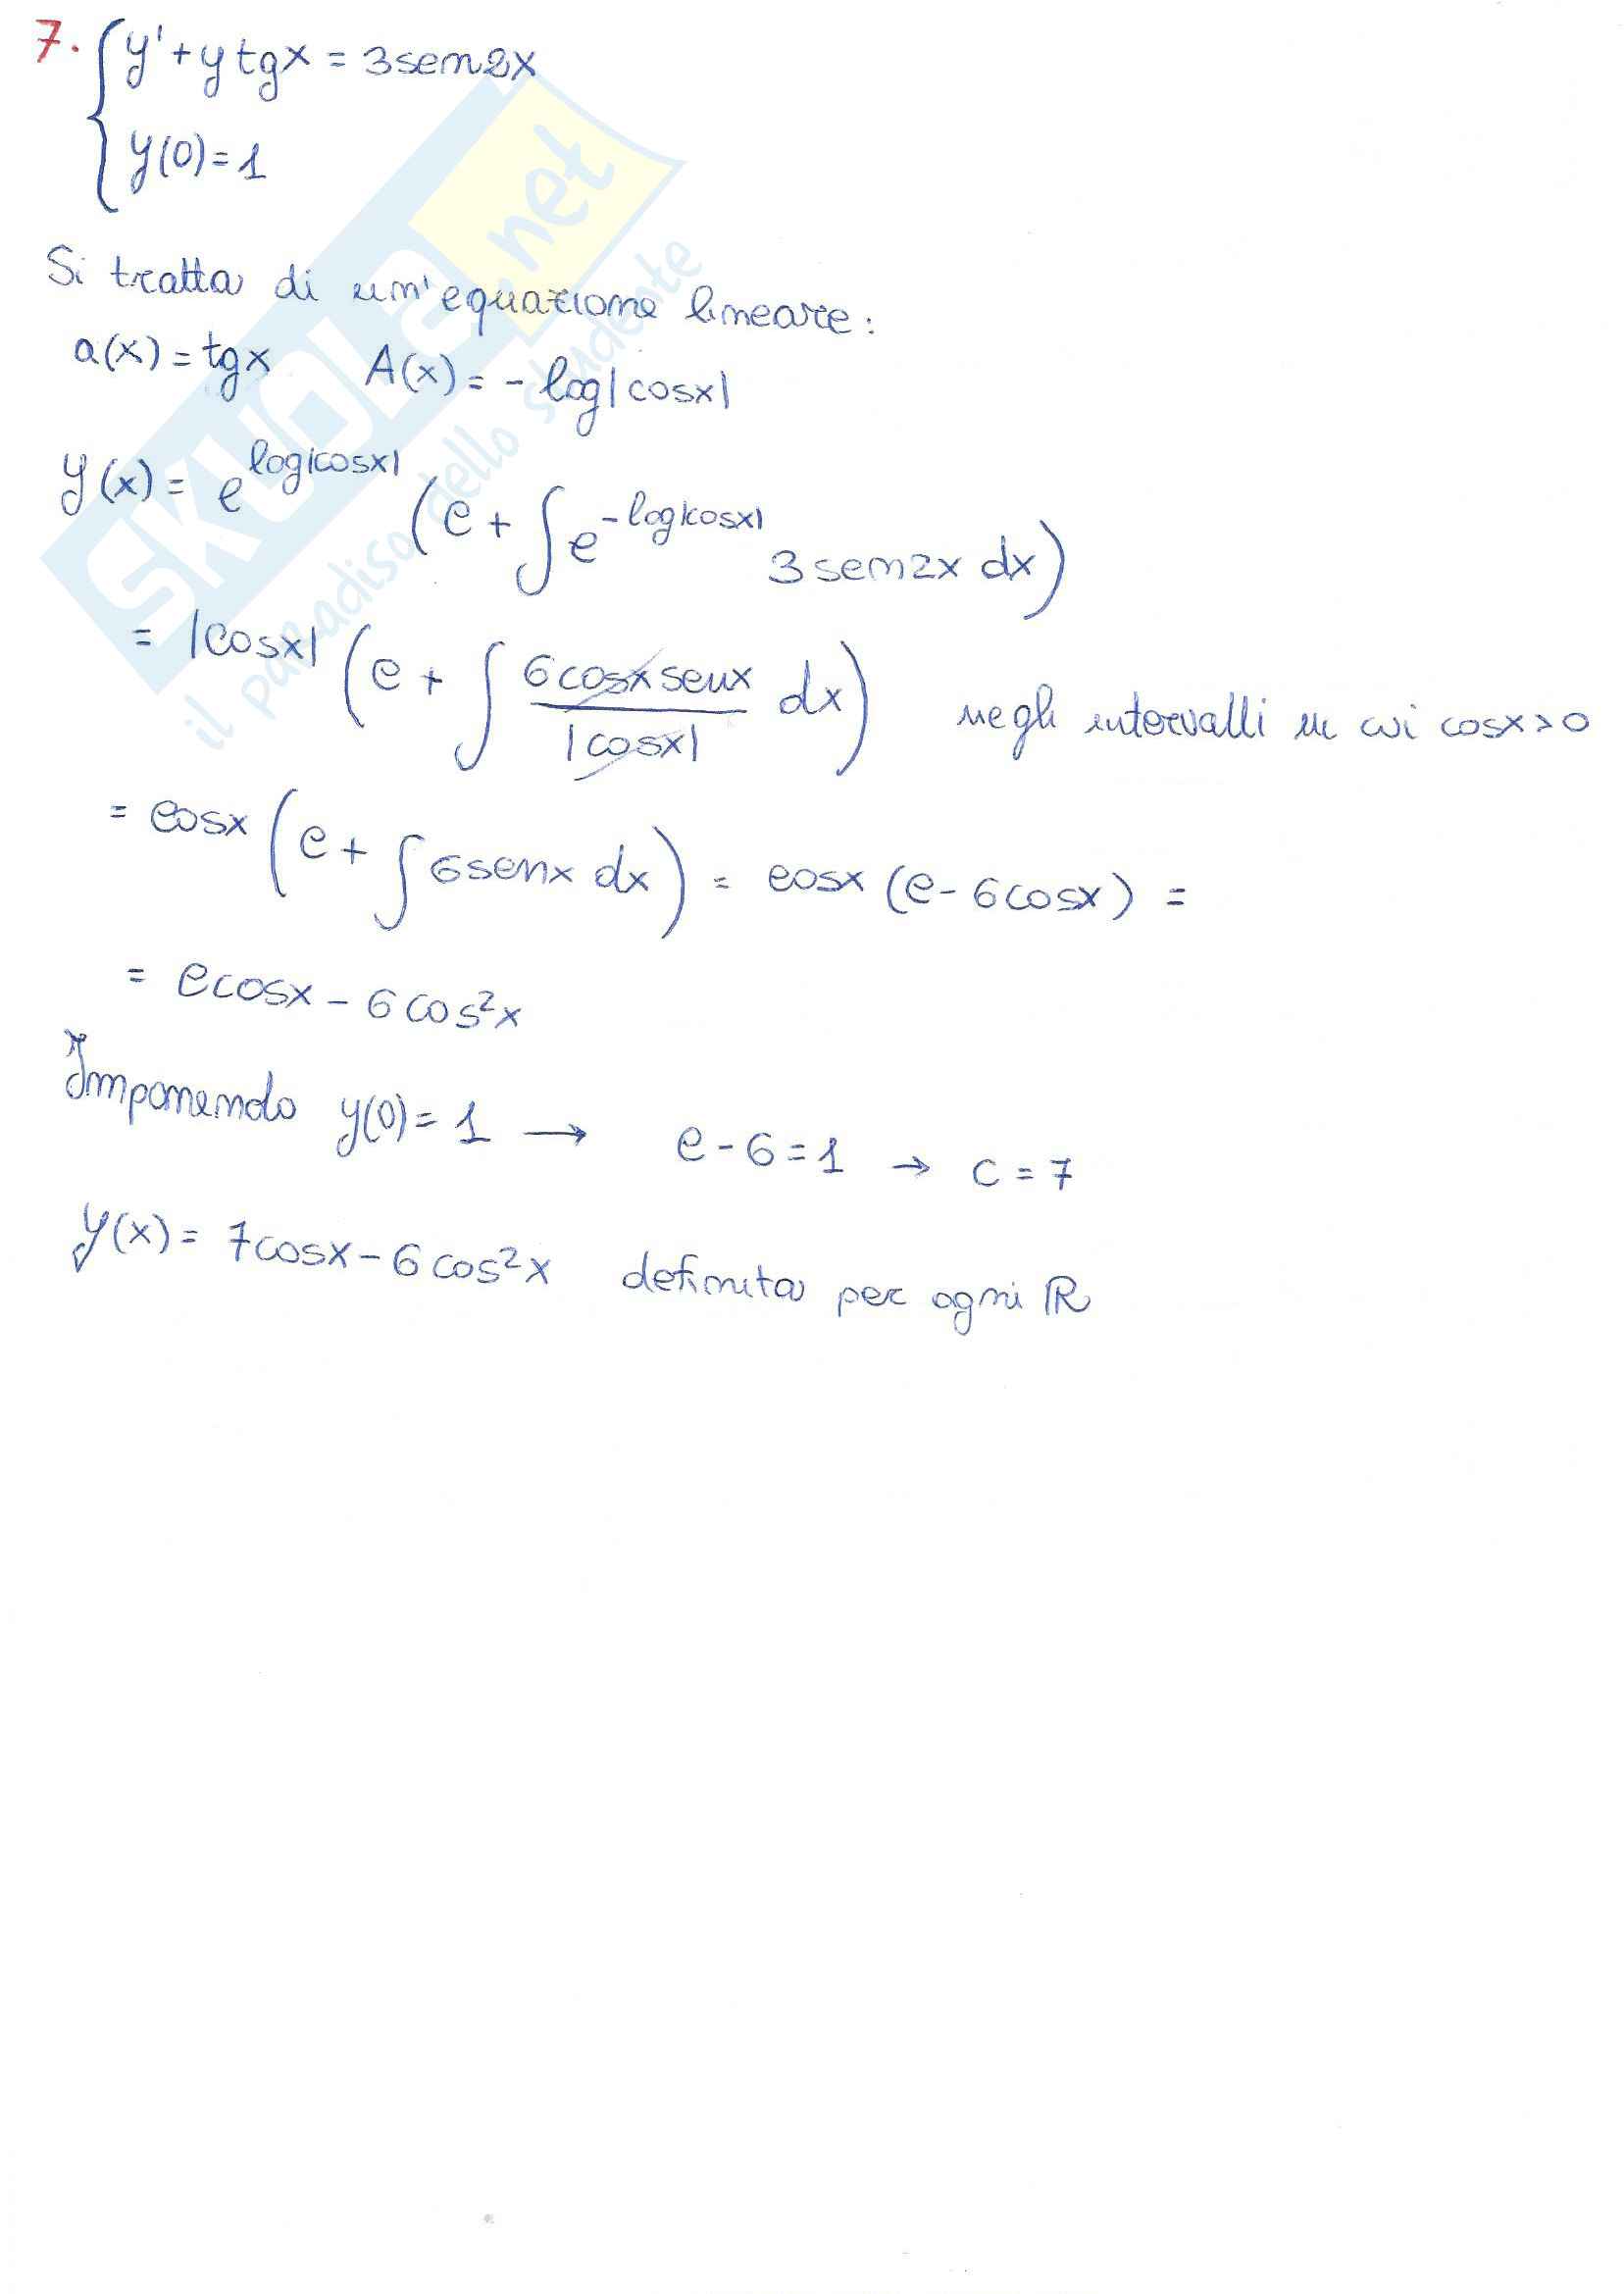 7. { y' + y tgx = 3sen2x
y(0) = 1
Si tratta di un'equazione lineare:
a(x) = tgx A(x) = - log|cosx|
y(x) = e^{log|cosx|} (c + ∫ e^{-log|cosx|} 3 sen2x dx)
= |cosx| (c + ∫ 6cosx senx / |cosx| dx) negli intervalli in cui cosx > 0
= cosx (c + ∫ 6senx dx) = cosx (c - 6cosx) =
= c cosx - 6 cos²x
Imponendo y(0) = 1 → c - 6 = 1 → c = 7
y(x) = 7cosx - 6 cos²x definita per ogni ℝ
SKUOLA.net
il paradiso dello studente